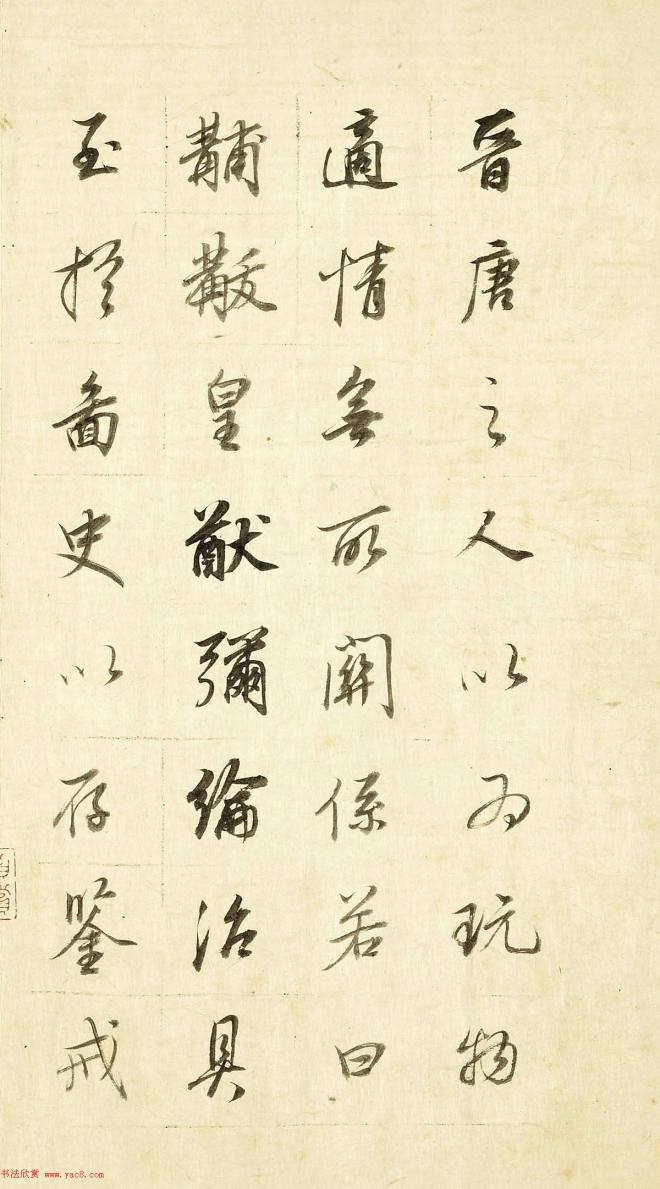 晉唐之人以為玩物
適情無所關係若曰
黼黻皇猷彌綸治具
至於圖史以存鑒戒
书法欣赏 www.yac8.com